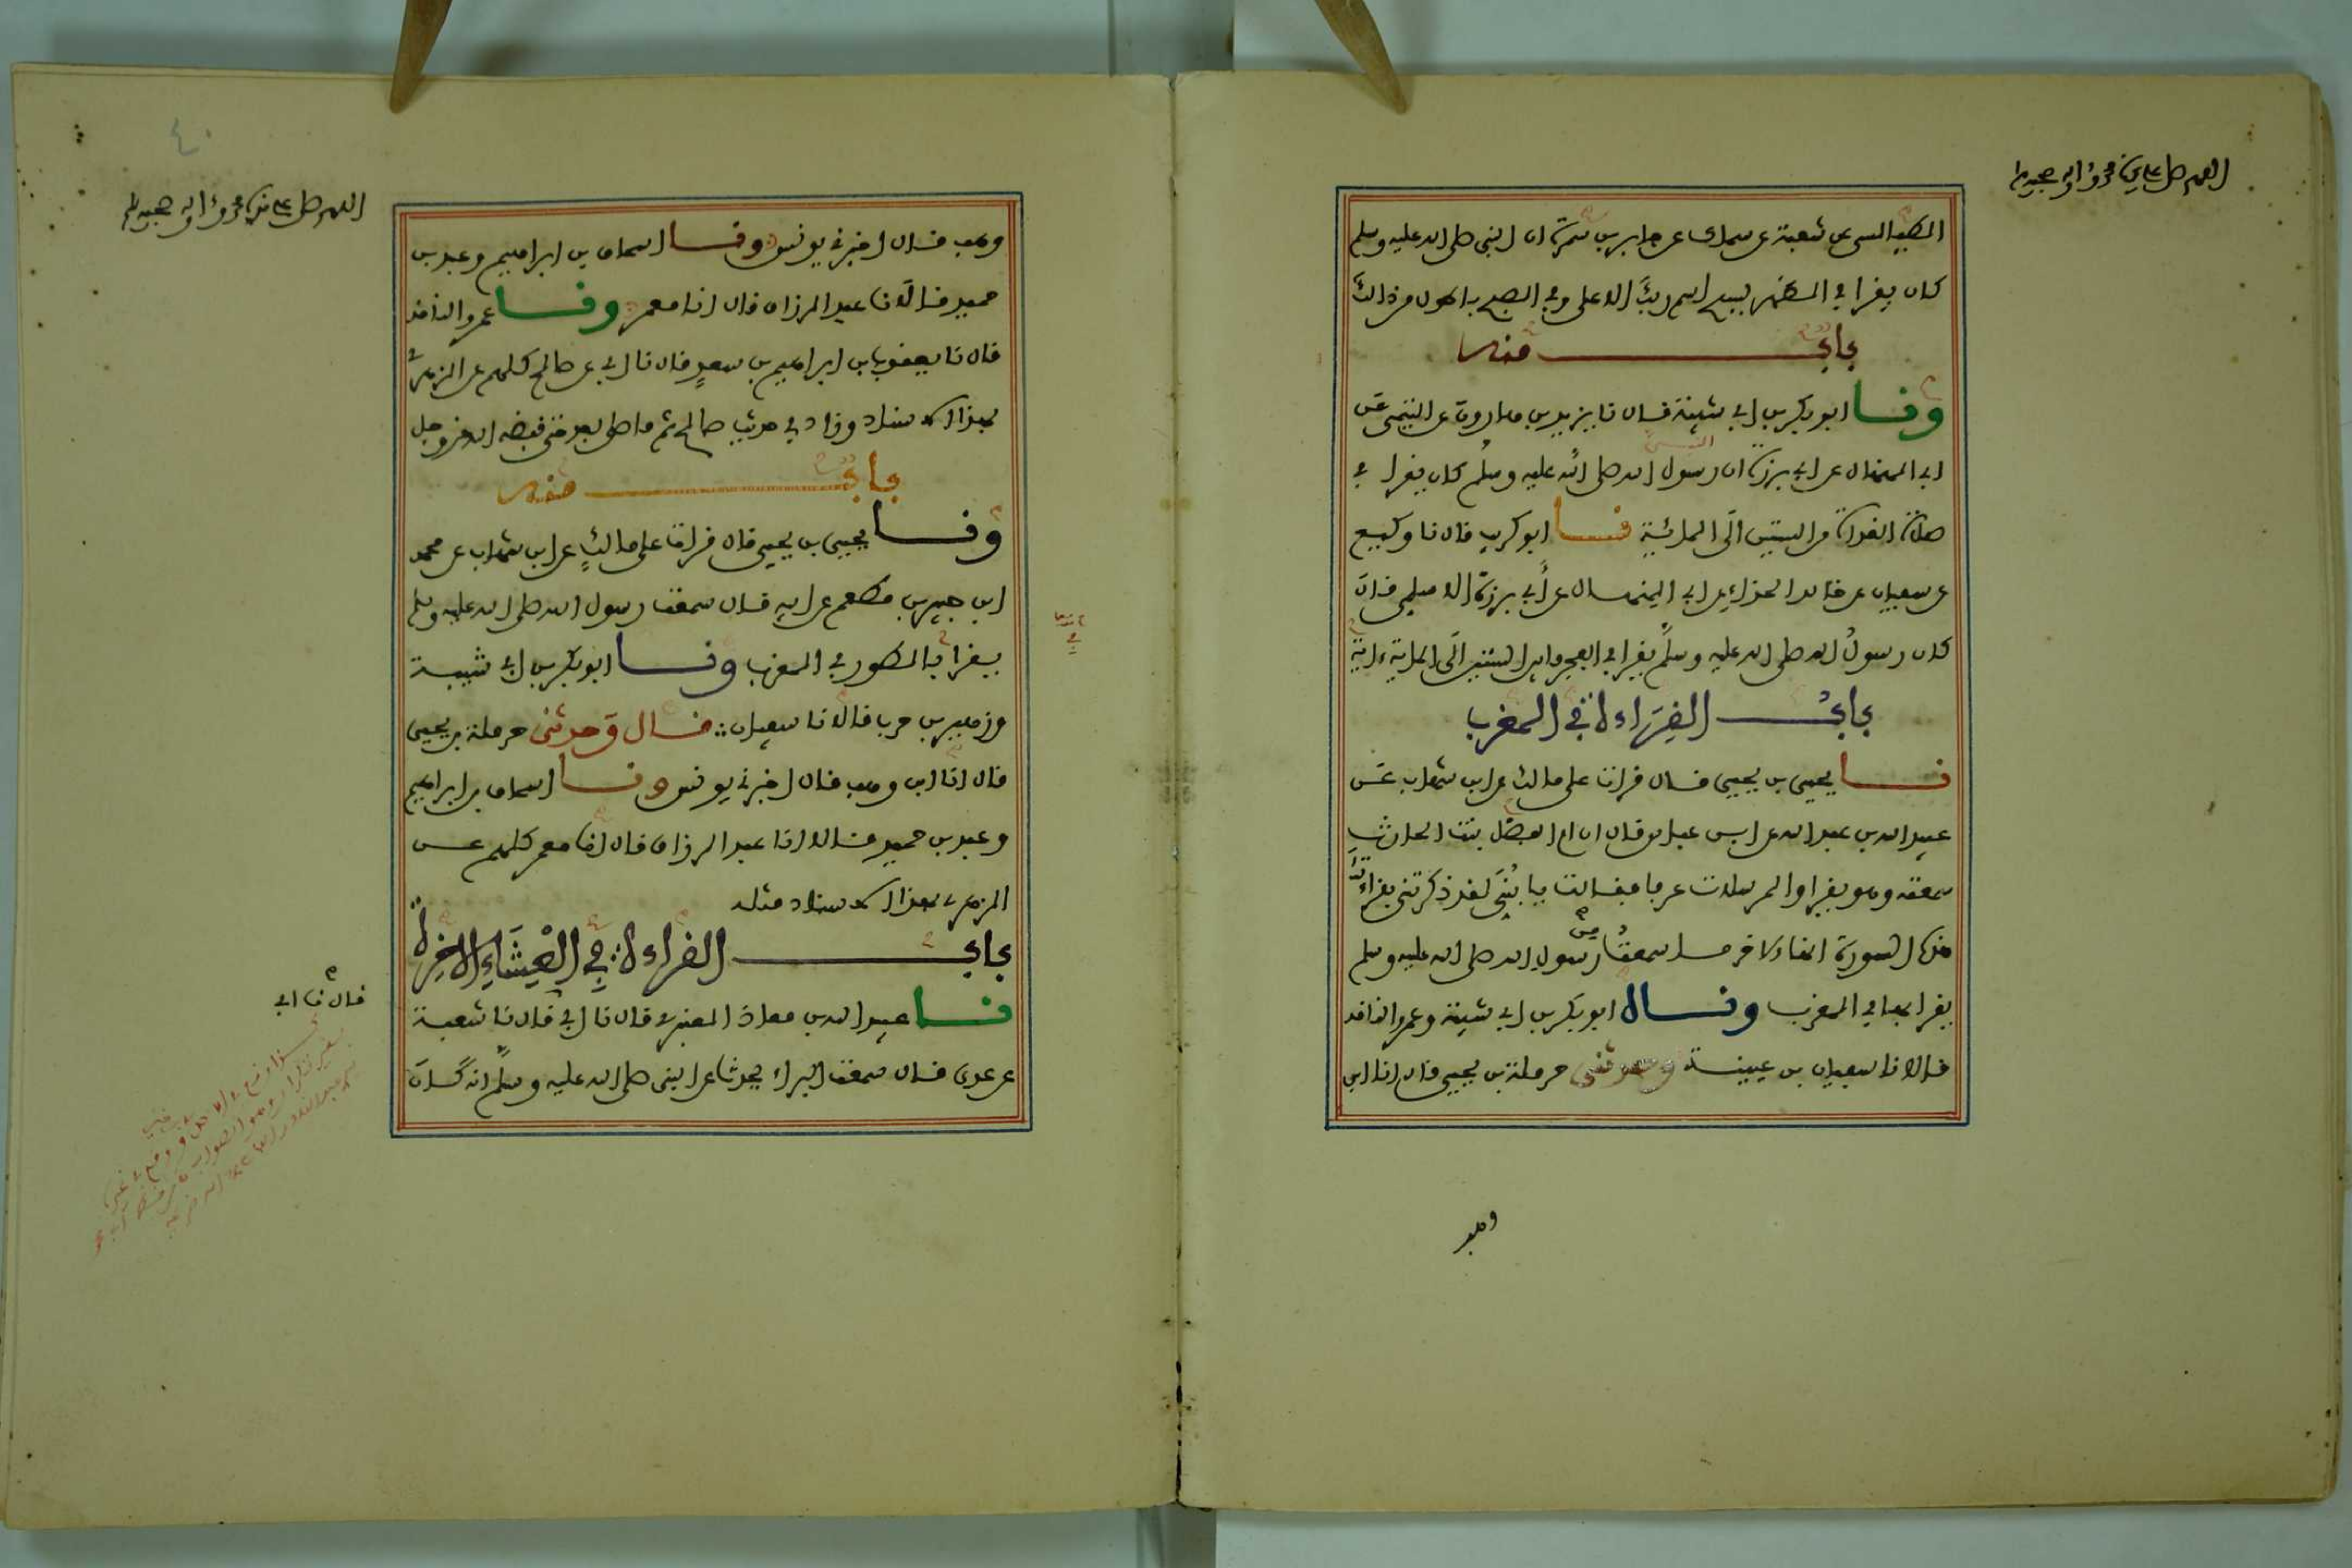 اللهم صل على سيدنا محمد وءاله وصحبه وسلم
الطيالسي عن شعبة عن سماك عن جابر بن سمرة ان النبي صلى الله عليه وسلم
كان يقرا في الظهر بسبح اسم ربك الاعلى وفي الصبح باطول من ذالك
باب منه
ونا ابو بكر بن ابي شيبة قال نا يزيد بن هارون عن التيمي عن
ابي المنهال عن ابي برزة ان رسول الله صلى الله عليه وسلم كان يقرا في
صلاة الغداة من الستين الى المائية نا ابو كريب قال نا وكيع
عن سفيان عن خالد الحذاء عن ابي المنهال عن أبي برزة الاسلمي قال
كان رسول الله صلى الله عليه وسلم يقرا في الفجر ما بين الستين الى الماية ءاية
باب القراءة في المغرب
نا يحيى بن يحيى قال قرات على مالك عن ابن شهاب عن
عبيد الله بن عبد الله عن ابن عباس قال ان ام الفضل بنت الحارث
سمعته وهو يقرا والمرسلات عرفا فقالت يا بني لقد ذكرتني بقراءتك
هذه السورة انها لاخر ما سمعت من رسول الله صلى الله عليه وسلم
يقرا بها في المغرب ونا ابو بكر بن ابي شيبة وعمرو الناقد
قالا نا سفيان بن عيينة وحدثني حرملة بن يحيى قال انا ابن
وهب
اللهم صل على سيدنا محمد وءاله وصحبه وسلم
٤٠
وهب قال اخبرني يونس ونا اسحاق بن ابراهيم وعبد بن
حميد قالا نا عبد الرزاق قال انا معمر ونا عمرو الناقد
قال نا يعقوب بن ابراهيم بن سعد قال نا ابي عن صالح كلهم عن الزهري
بهذا الاسناد وزاد في حديث صالح ثم ما صلى بعد حتى قبضه الله عز وجل
باب منه
ونا يحيى بن يحيى قال قرات على مالك عن ابن شهاب عن محمد
ابن جبير بن مطعم عن ابيه قال سمعت رسول الله صلى الله عليه وسلم
يقرا بالطور في المغرب ونا ابو بكر بن ابي شيبة
وزهير بن حرب قالا نا سفيان قال وحدثني حرملة بن يحيى
قال انا ابن وهب قال اخبرني يونس ونا اسحاق بن ابراهيم
وعبد بن حميد قالا انا عبد الرزاق قال انا معمر كلهم عن
الزهري بهذا الاسناد مثله
باب القراءة في العشاء الاخرة
نا عبيد الله بن معاذ العنبري قال نا ابي قال نا شعبة
عن عدي قال سمعت البراء يحدث عن النبي صلى الله عليه وسلم انه كان
قال نا ابي